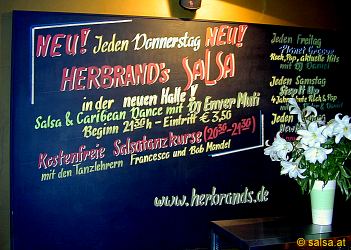 NEU! Jeden Donnerstag NEU!
HERBRAND's SALSA
in der neuen Halle!
Salsa & Caribean Dance mit Dj Enver Muti
Beginn 21:30h - Eintritt € 3,50
Kostenfreie Salsatanzkurse (20:30-21:30)
mit den Tanzlehrern Francesco und Bob Mandel
www.herbrands.de
Jeden Freitag
Planet Groove
Rock, Pop, aktuelle Hits
mit DJ Daniel
Jeden Samstag
Step It Up
Rock & Pop
mit DJ
Jeden
© salsa.at